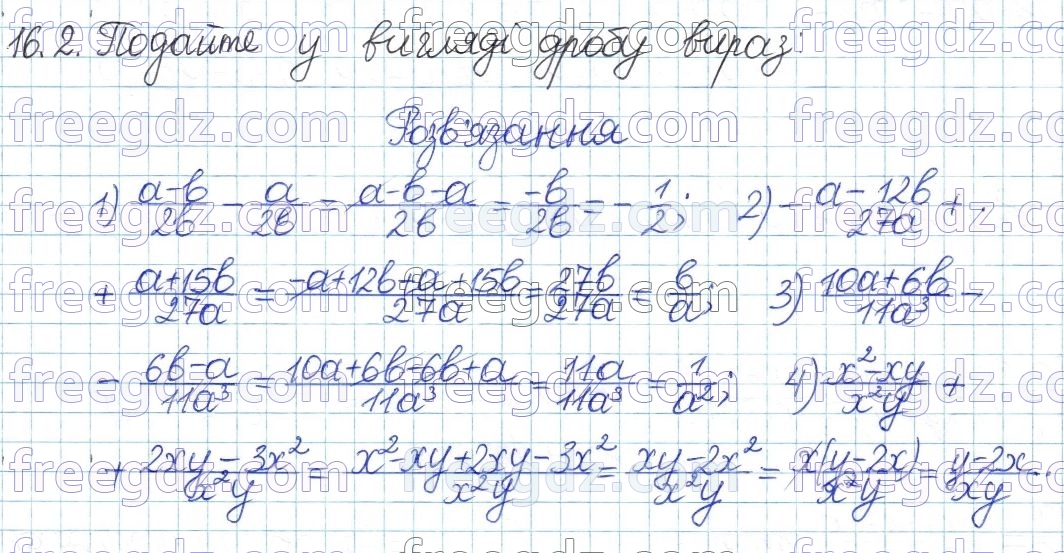 16.2. Подайте у вигляді дробу вираз:
Розв'язання
1) (a-b)/(2b) - a/(2b) = (a-b-a)/(2b) = (-b)/(2b) = - 1/2; 2) - (a-12b)/(27a) +
+ (a+15b)/(27a) = (-a+12b+a+15b)/(27a) = (27b)/(27a) = b/a; 3) (10a+6b)/(11a³) -
- (6b-a)/(11a³) = (10a+6b-6b+a)/(11a³) = (11a)/(11a³) = 1/a²; 4) (x²-xy)/(x²y) +
+ (2xy-3x²)/(x²y) = (x²-xy+2xy-3x²)/(x²y) = (xy-2x²)/(x²y) = (x(y-2x))/(x²y) = (y-2x)/(xy).
freegdz.com